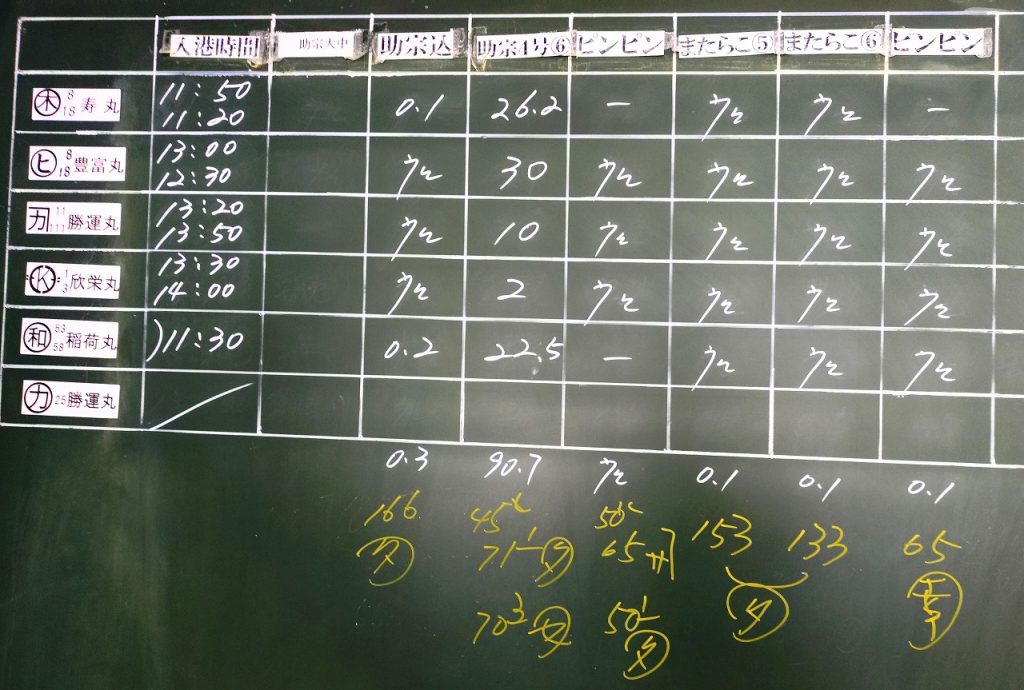 入港時間 助宗大中 助宗込 助宗4号⑥ ピンピン またらこ⑤ またらこ⑥ ピンピン
木 8 18 寿丸 11:50 11:20 0.1 26.2 ー ウヒ ウヒ ー
ヒ 8 18 豊富丸 13:00 12:30 ウヒ 30 ウヒ ウヒ ウヒ ウヒ
11 111 勝運丸 13:20 13:50 ウヒ 10 ウヒ ウヒ ウヒ ウヒ
K 1 3 欣栄丸 13:30 14:00 ウヒ 2 ウヒ ウヒ ウヒ ウヒ
和 53 58 稲荷丸 )11:30 0.2 22.5 ー ウヒ ウヒ ウヒ
カ 25 勝運丸
0.3 90.7 ウヒ 0.1 0.1 0.1
166 45 50 153 133 65
71 65
70 50